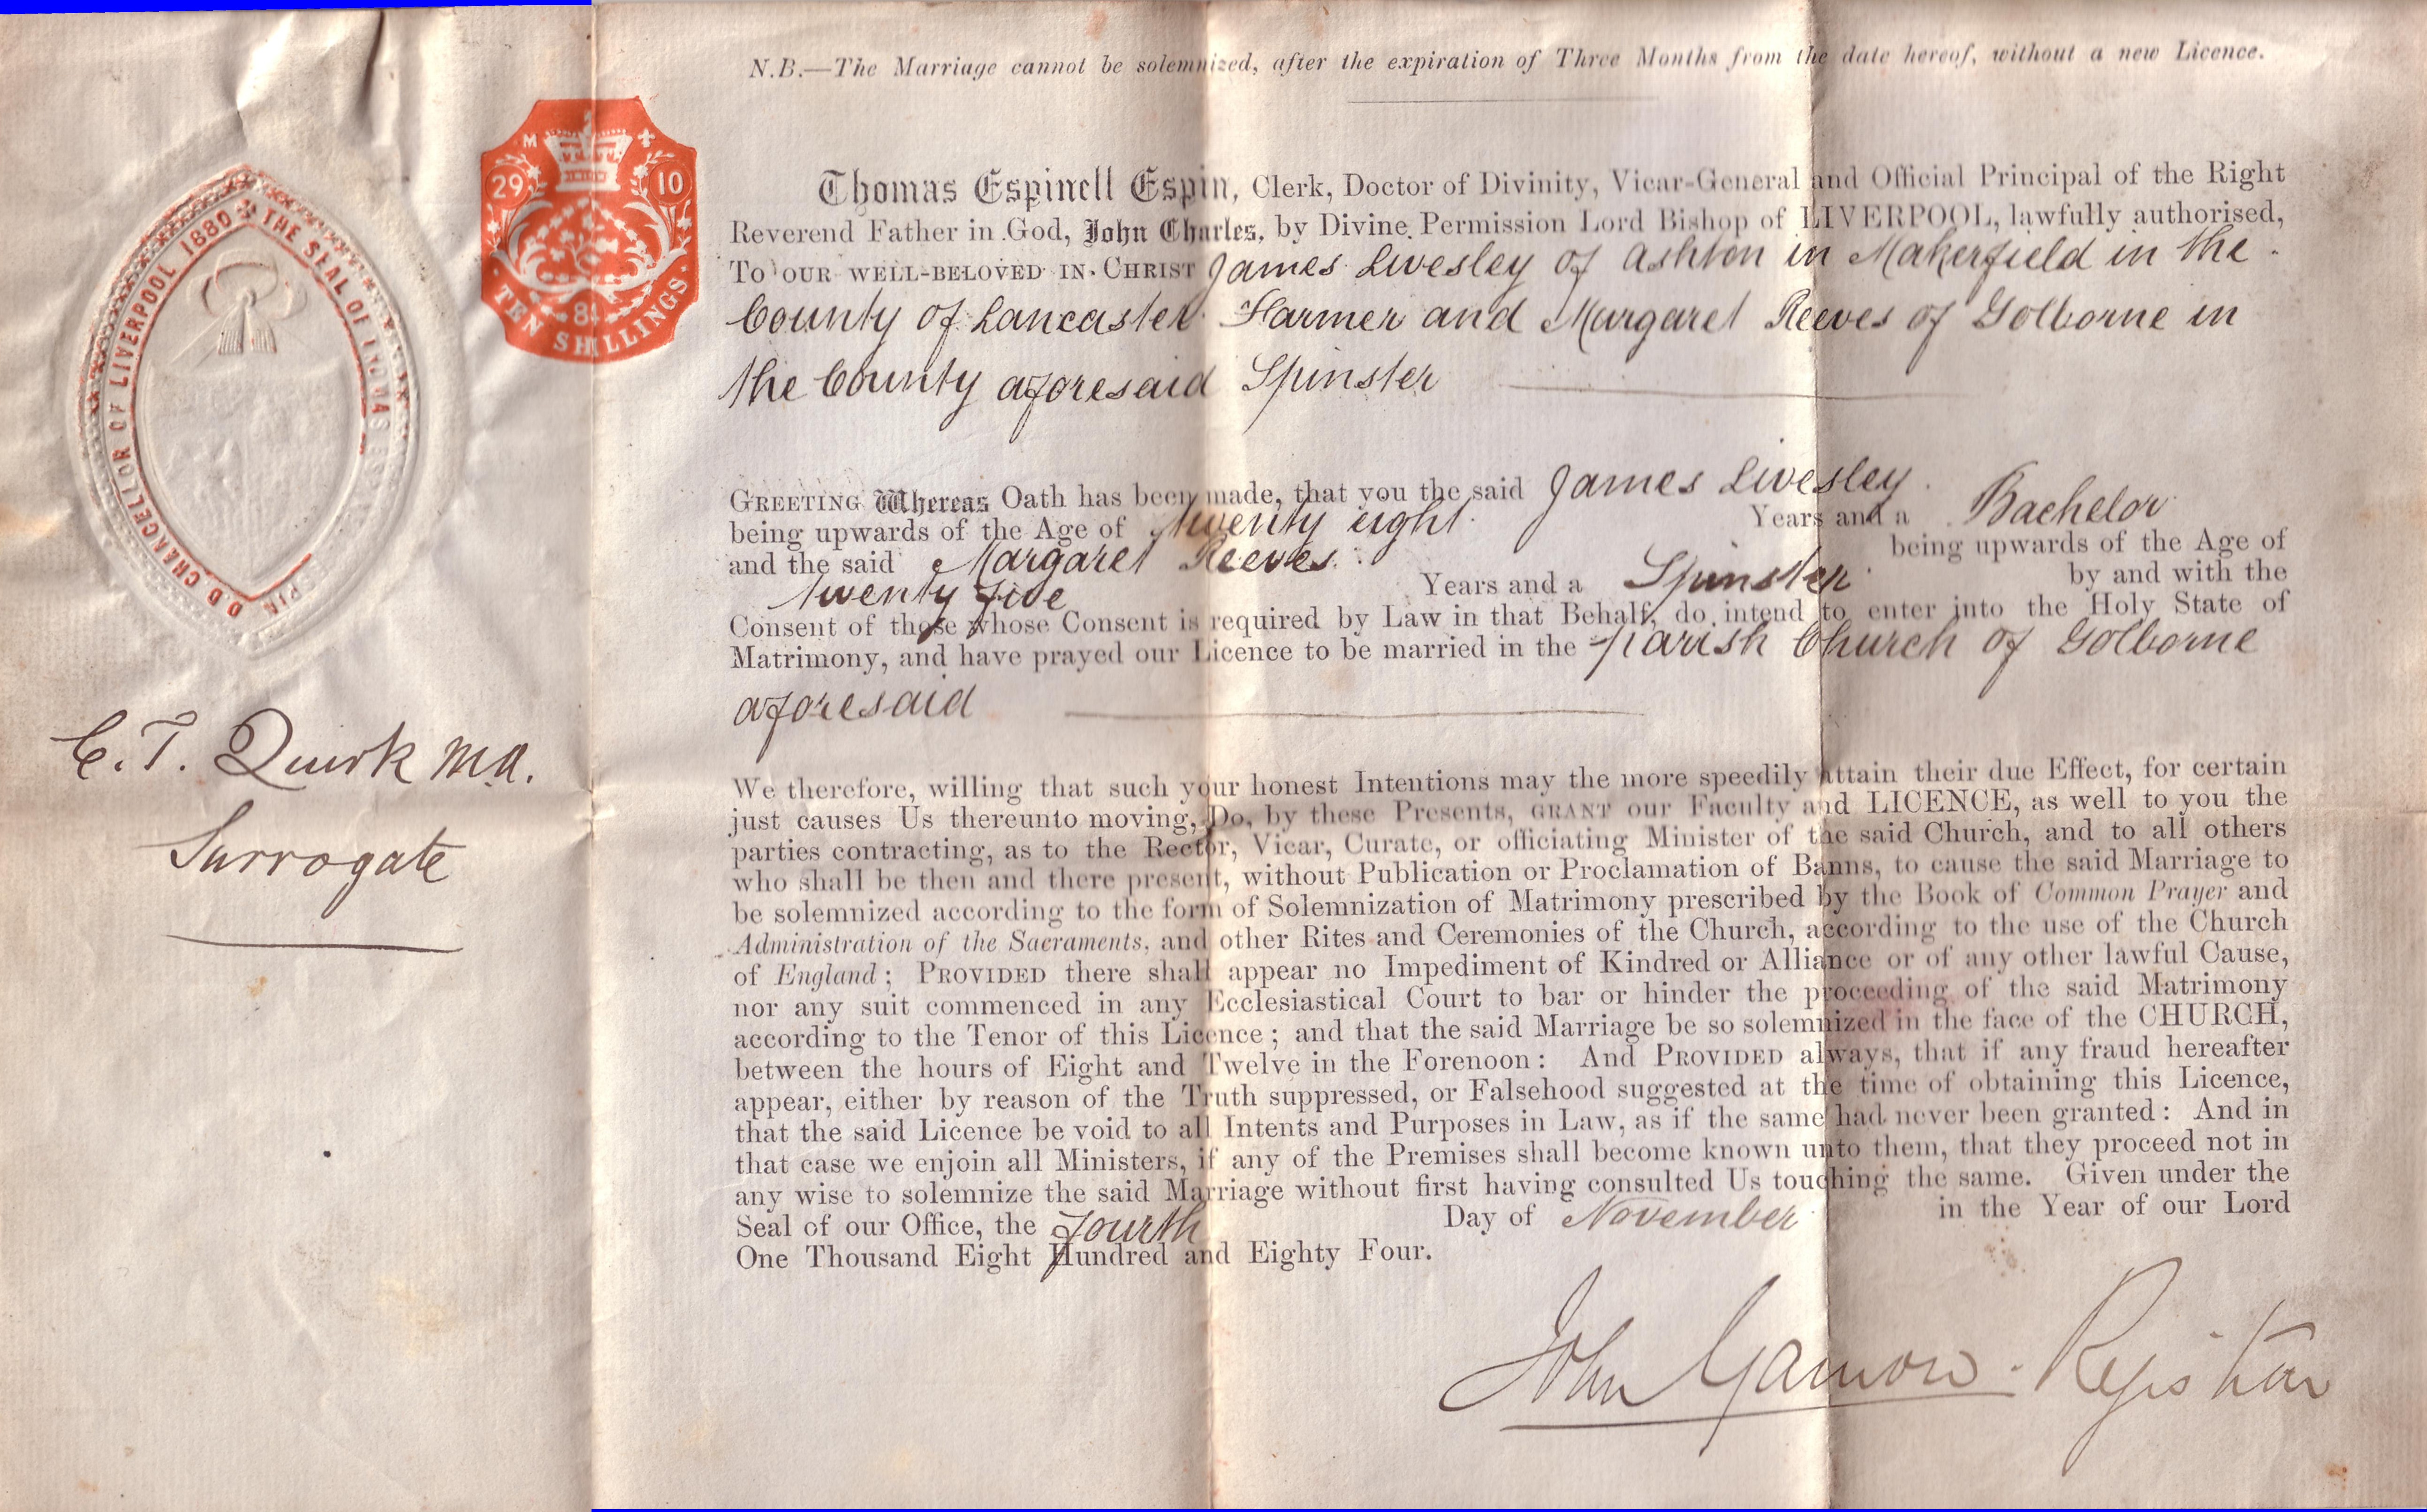 N.B.—The Marriage cannot be solemnized, after the expiration of Three Months from the date hereof, without a new Licence.
THE SEAL OF THOMAS ESPIN D.D. CHANCELLOR OF LIVERPOOL 1880
M
29 10
84
TEN SHILLINGS
Thomas Espinell Espin, Clerk, Doctor of Divinity, Vicar-General and Official Principal of the Right
Reverend Father in God, John Charles, by Divine Permission Lord Bishop of LIVERPOOL, lawfully authorised,
To our well-beloved in Christ James Livesley of Ashton in Makerfield in the
County of Lancaster Farmer and Margaret Reeves of Golborne in
the County aforesaid Spinster
Greeting Whereas Oath has been made, that you the said James Livesley
being upwards of the Age of twenty eight Years and a Bachelor
and the said Margaret Reeves being upwards of the Age of
twenty five Years and a Spinster by and with the
Consent of those whose Consent is required by Law in that Behalf, do intend to enter into the Holy State of
Matrimony, and have prayed our Licence to be married in the Parish Church of Golborne
aforesaid
C. T. Quirk M.A.
Surrogate
We therefore, willing that such your honest Intentions may the more speedily attain their due Effect, for certain
just causes Us thereunto moving, Do, by these Presents, GRANT our Faculty and LICENCE, as well to you the
parties contracting, as to the Rector, Vicar, Curate, or officiating Minister of the said Church, and to all others
who shall be then and there present, without Publication or Proclamation of Banns, to cause the said Marriage to
be solemnized according to the form of Solemnization of Matrimony prescribed by the Book of Common Prayer and
Administration of the Sacraments, and other Rites and Ceremonies of the Church, according to the use of the Church
of England; Provided there shall appear no Impediment of Kindred or Alliance or of any other lawful Cause,
nor any suit commenced in any Ecclesiastical Court to bar or hinder the proceeding of the said Matrimony
according to the Tenor of this Licence; and that the said Marriage be so solemnized in the face of the CHURCH,
between the hours of Eight and Twelve in the Forenoon: And Provided always, that if any fraud hereafter
appear, either by reason of the Truth suppressed, or Falsehood suggested at the time of obtaining this Licence,
that the said Licence be void to all Intents and Purposes in Law, as if the same had never been granted: And in
that case we enjoin all Ministers, if any of the Premises shall become known unto them, that they proceed not in
any wise to solemnize the said Marriage without first having consulted Us touching the same. Given under the
Seal of our Office, the fourth Day of November in the Year of our Lord
One Thousand Eight Hundred and Eighty Four.
John Gamon Registrar